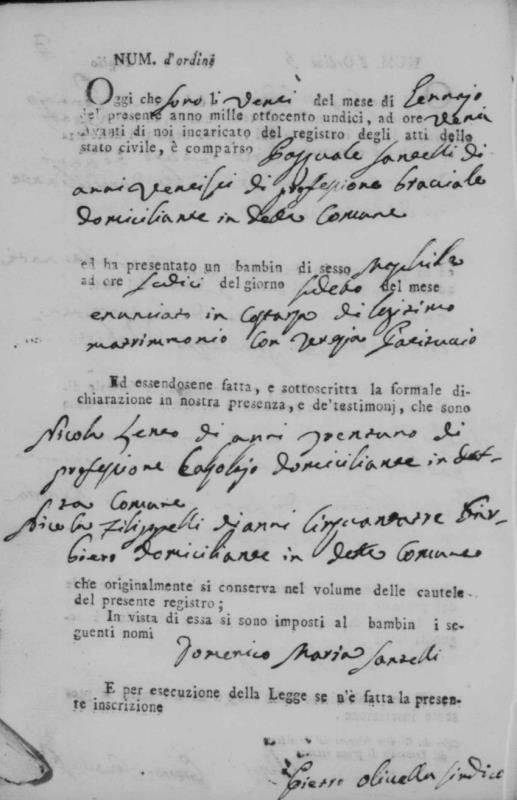 NUM. d'ordine
Oggi che sono li venti del mese di Gennajo
del presente anno mille ottocento undici, ad ore venti
Avanti di noi incaricato del registro degli atti dello
stato civile, è comparso Pasquale Santelli di
anni ventisei di professione bracciale
domiciliante in detta Comune
ed ha presentato un bambin di sesso Maschile
ad ore sedici del giorno sudetto del mese
enunciato in di legitimo
matrimmonio con
Ed essendosene fatta, e sottoscritta la formale di-
chiarazione in nostra presenza, e de'testimonj, che sono
Nicola di anni trentuno di
professione domiciliante in det-
ta Comune
Nicola Filippelli d'anni Cinquantatre Bar-
biero domiciliante in detta Comune
che originalmente si conserva nel volume delle cautele
del presente registro;
In vista di essa si sono imposti al bambin i se-
guenti nomi
Domenico Maria Santelli
E per esecuzione della Legge se n'è fatta la presen-
te inscrizione
Pietro Olivella Sindico